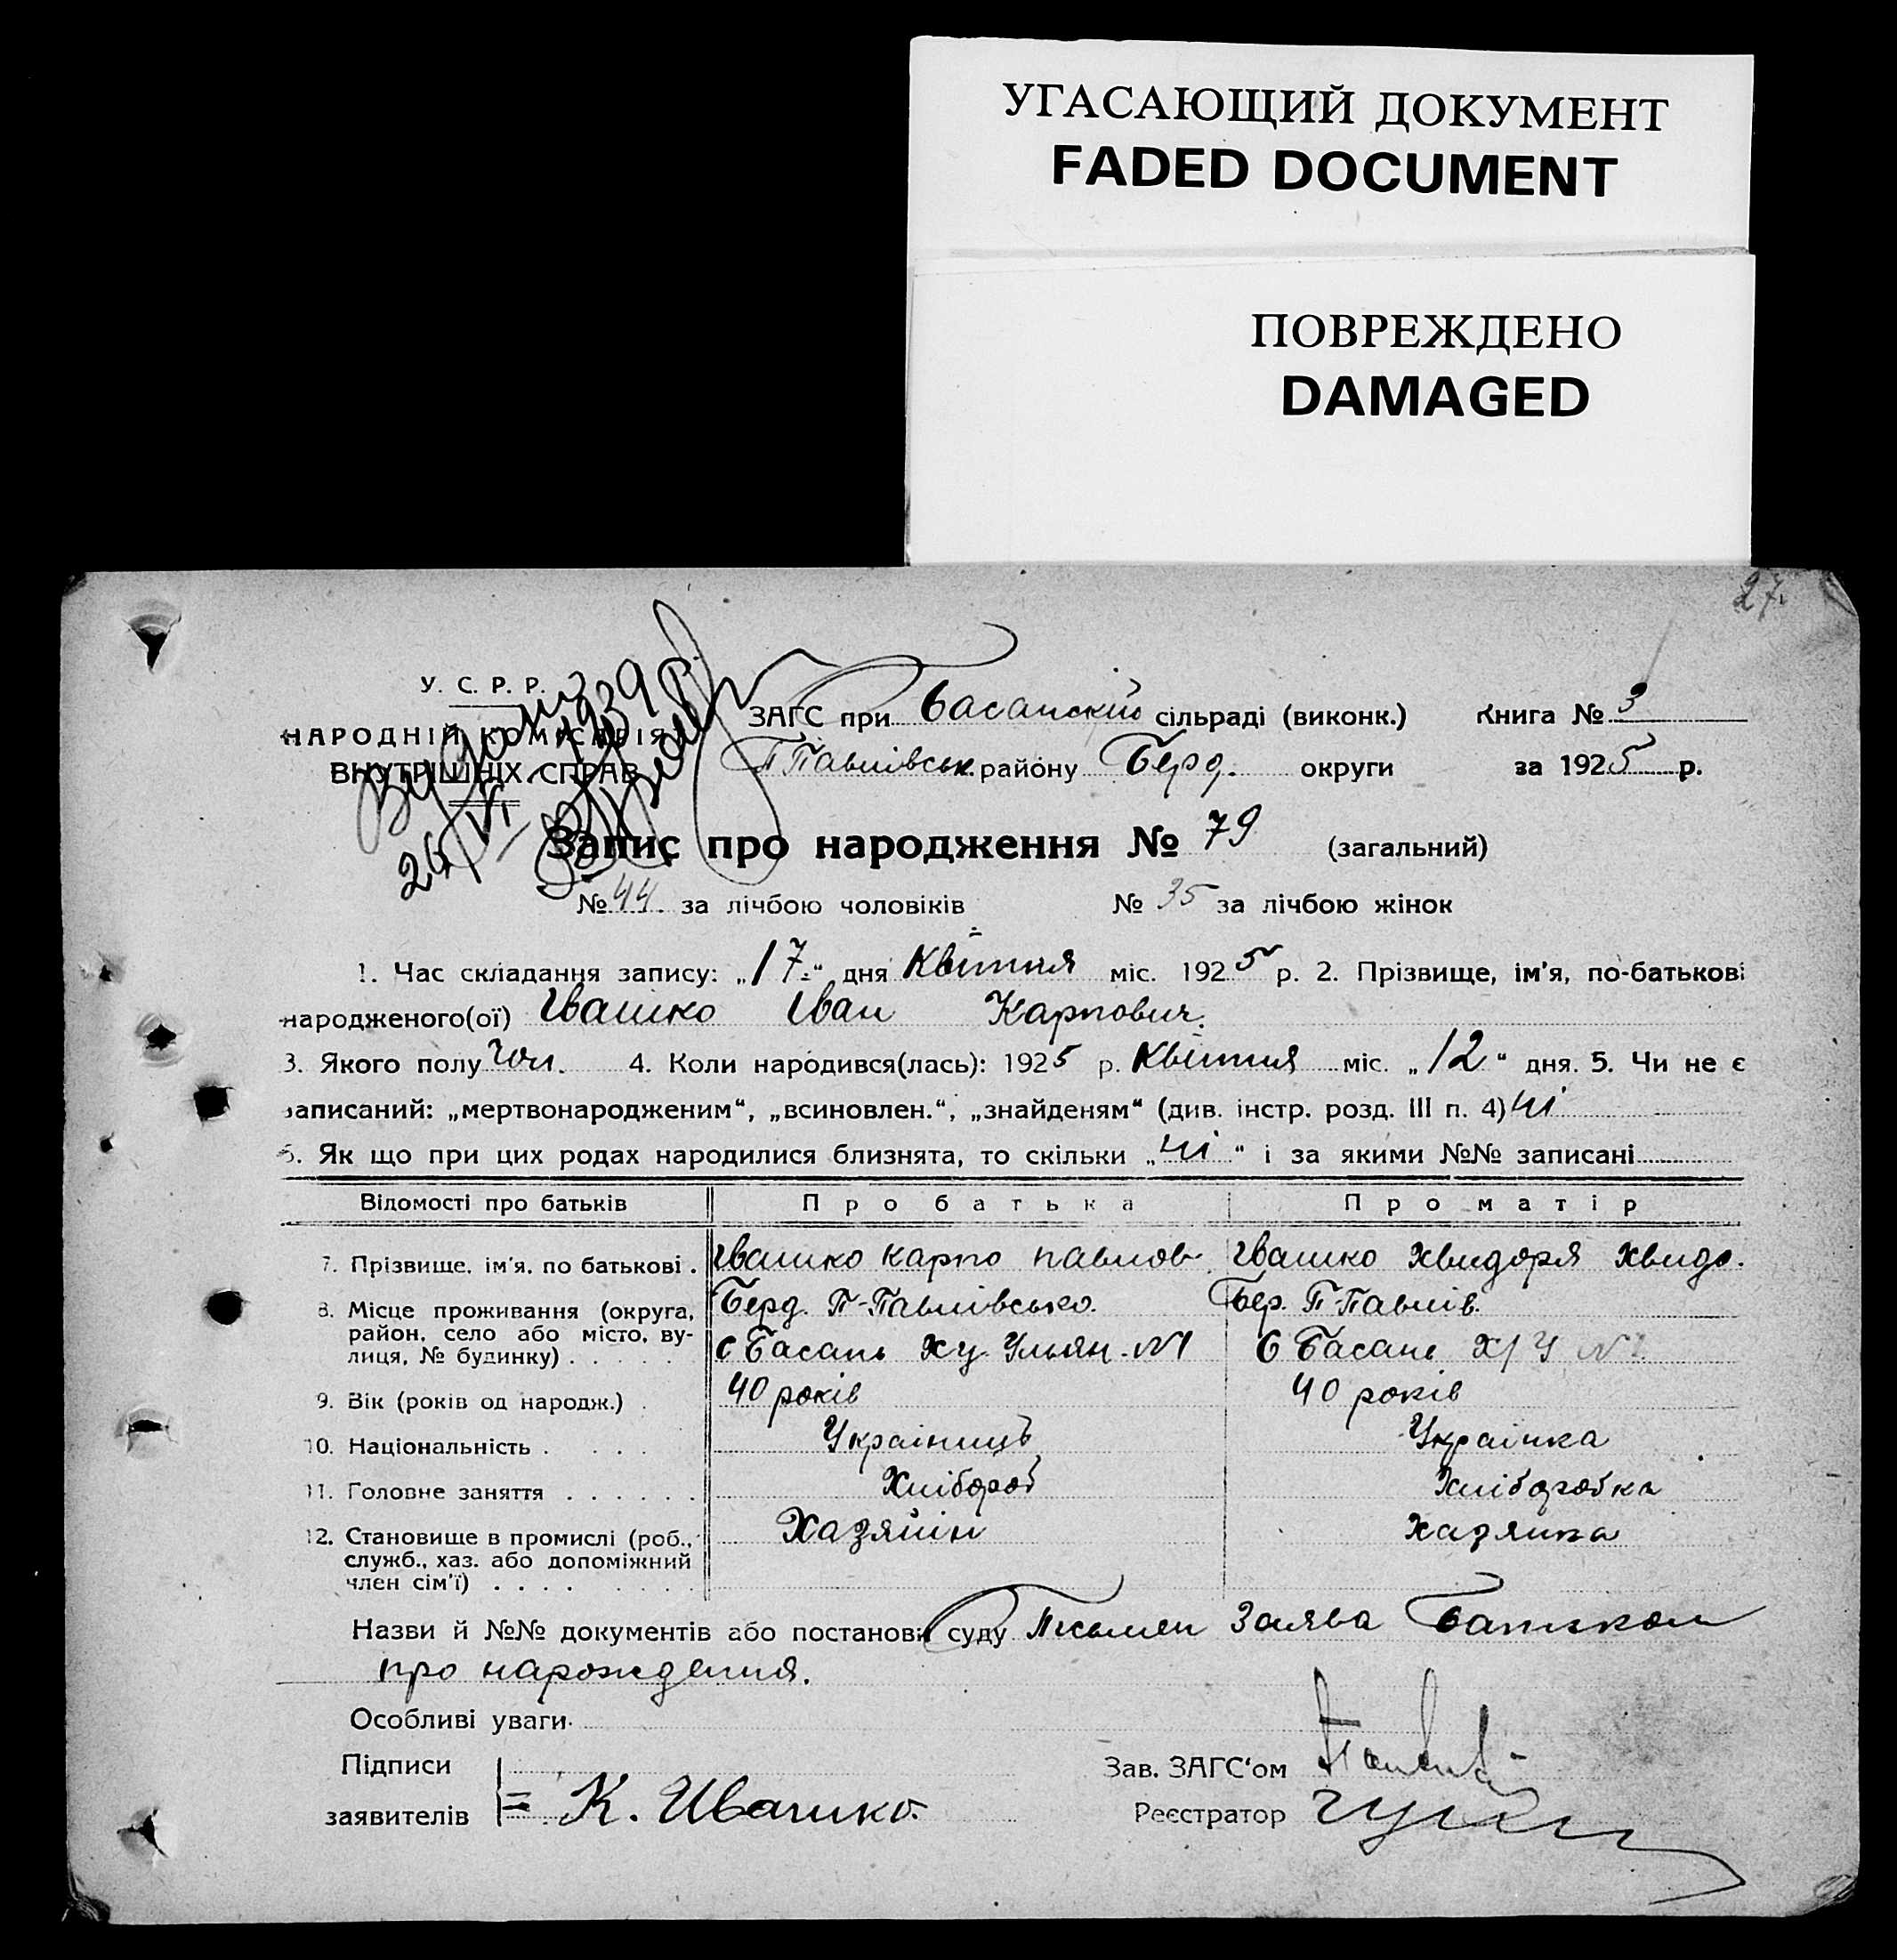 УГАСАЮЩИЙ ДОКУМЕНТ
FADED DOCUMENT
ПОВРЕЖДЕНО
DAMAGED
27.
У. С. Р. Р.
НАРОДНІЙ КОМІСАРІЯТ
ВНУТРІШНІХ СПРАВ
26/VI 1939 р
ЗАГС при Басанский сільраді (виконк.) Книга № 3
П Павлівськ. району Берд. округи за 1925 р.
Запис про народження № 79 (загальний)
№ 44 за лічбою чоловіків № 35 за лічбою жінок
1. Час складання запису: „17" дня Квітня міс. 1925 р. 2. Прізвище, ім'я, по-батькові
народженого(ої) Івашко Іван Карпович.
3. Якого полу чол. 4. Коли народився(лась): 1925 р. Квітня міс. „12" дня. 5. Чи не є
записаний: „мертвонародженим", „всиновлен.", „знайденям" (див. інстр. розд. III п. 4) ні
6. Як що при цих родах народилися близнята, то скільки „ні" і за якими №№ записані
Відомості про батьків Про батька Про матір
7. Прізвище, ім'я, по батькові . Івашко Карпо Павлов. Івашко Хвидоря Хвидо.
8. Місце проживання (округа, район, село або місто, вулиця, № будинку) . . . . . Берд. П-Павлівсько. Бер. П-Павлів.
с Басань Ху. Ульян. №1 С Басань Х/У №1
9. Вік (років од народж.) . 40 років 40 років
10. Національність . . . . Українцъ Українка
11. Головне заняття . . . . . . Хлібороб Хліборобка
12. Становище в промислі (роб., служб., хаз. або допоміжний член сім'ї) . . . . Хазяйін Хазяйка
Назви й №№ документів або постанови суду Письмен Заява Батьком
про нарождения.
Особливі уваги
Підписи Зав. ЗАГС'ом
заявителів К. Ивашко. Реєстратор